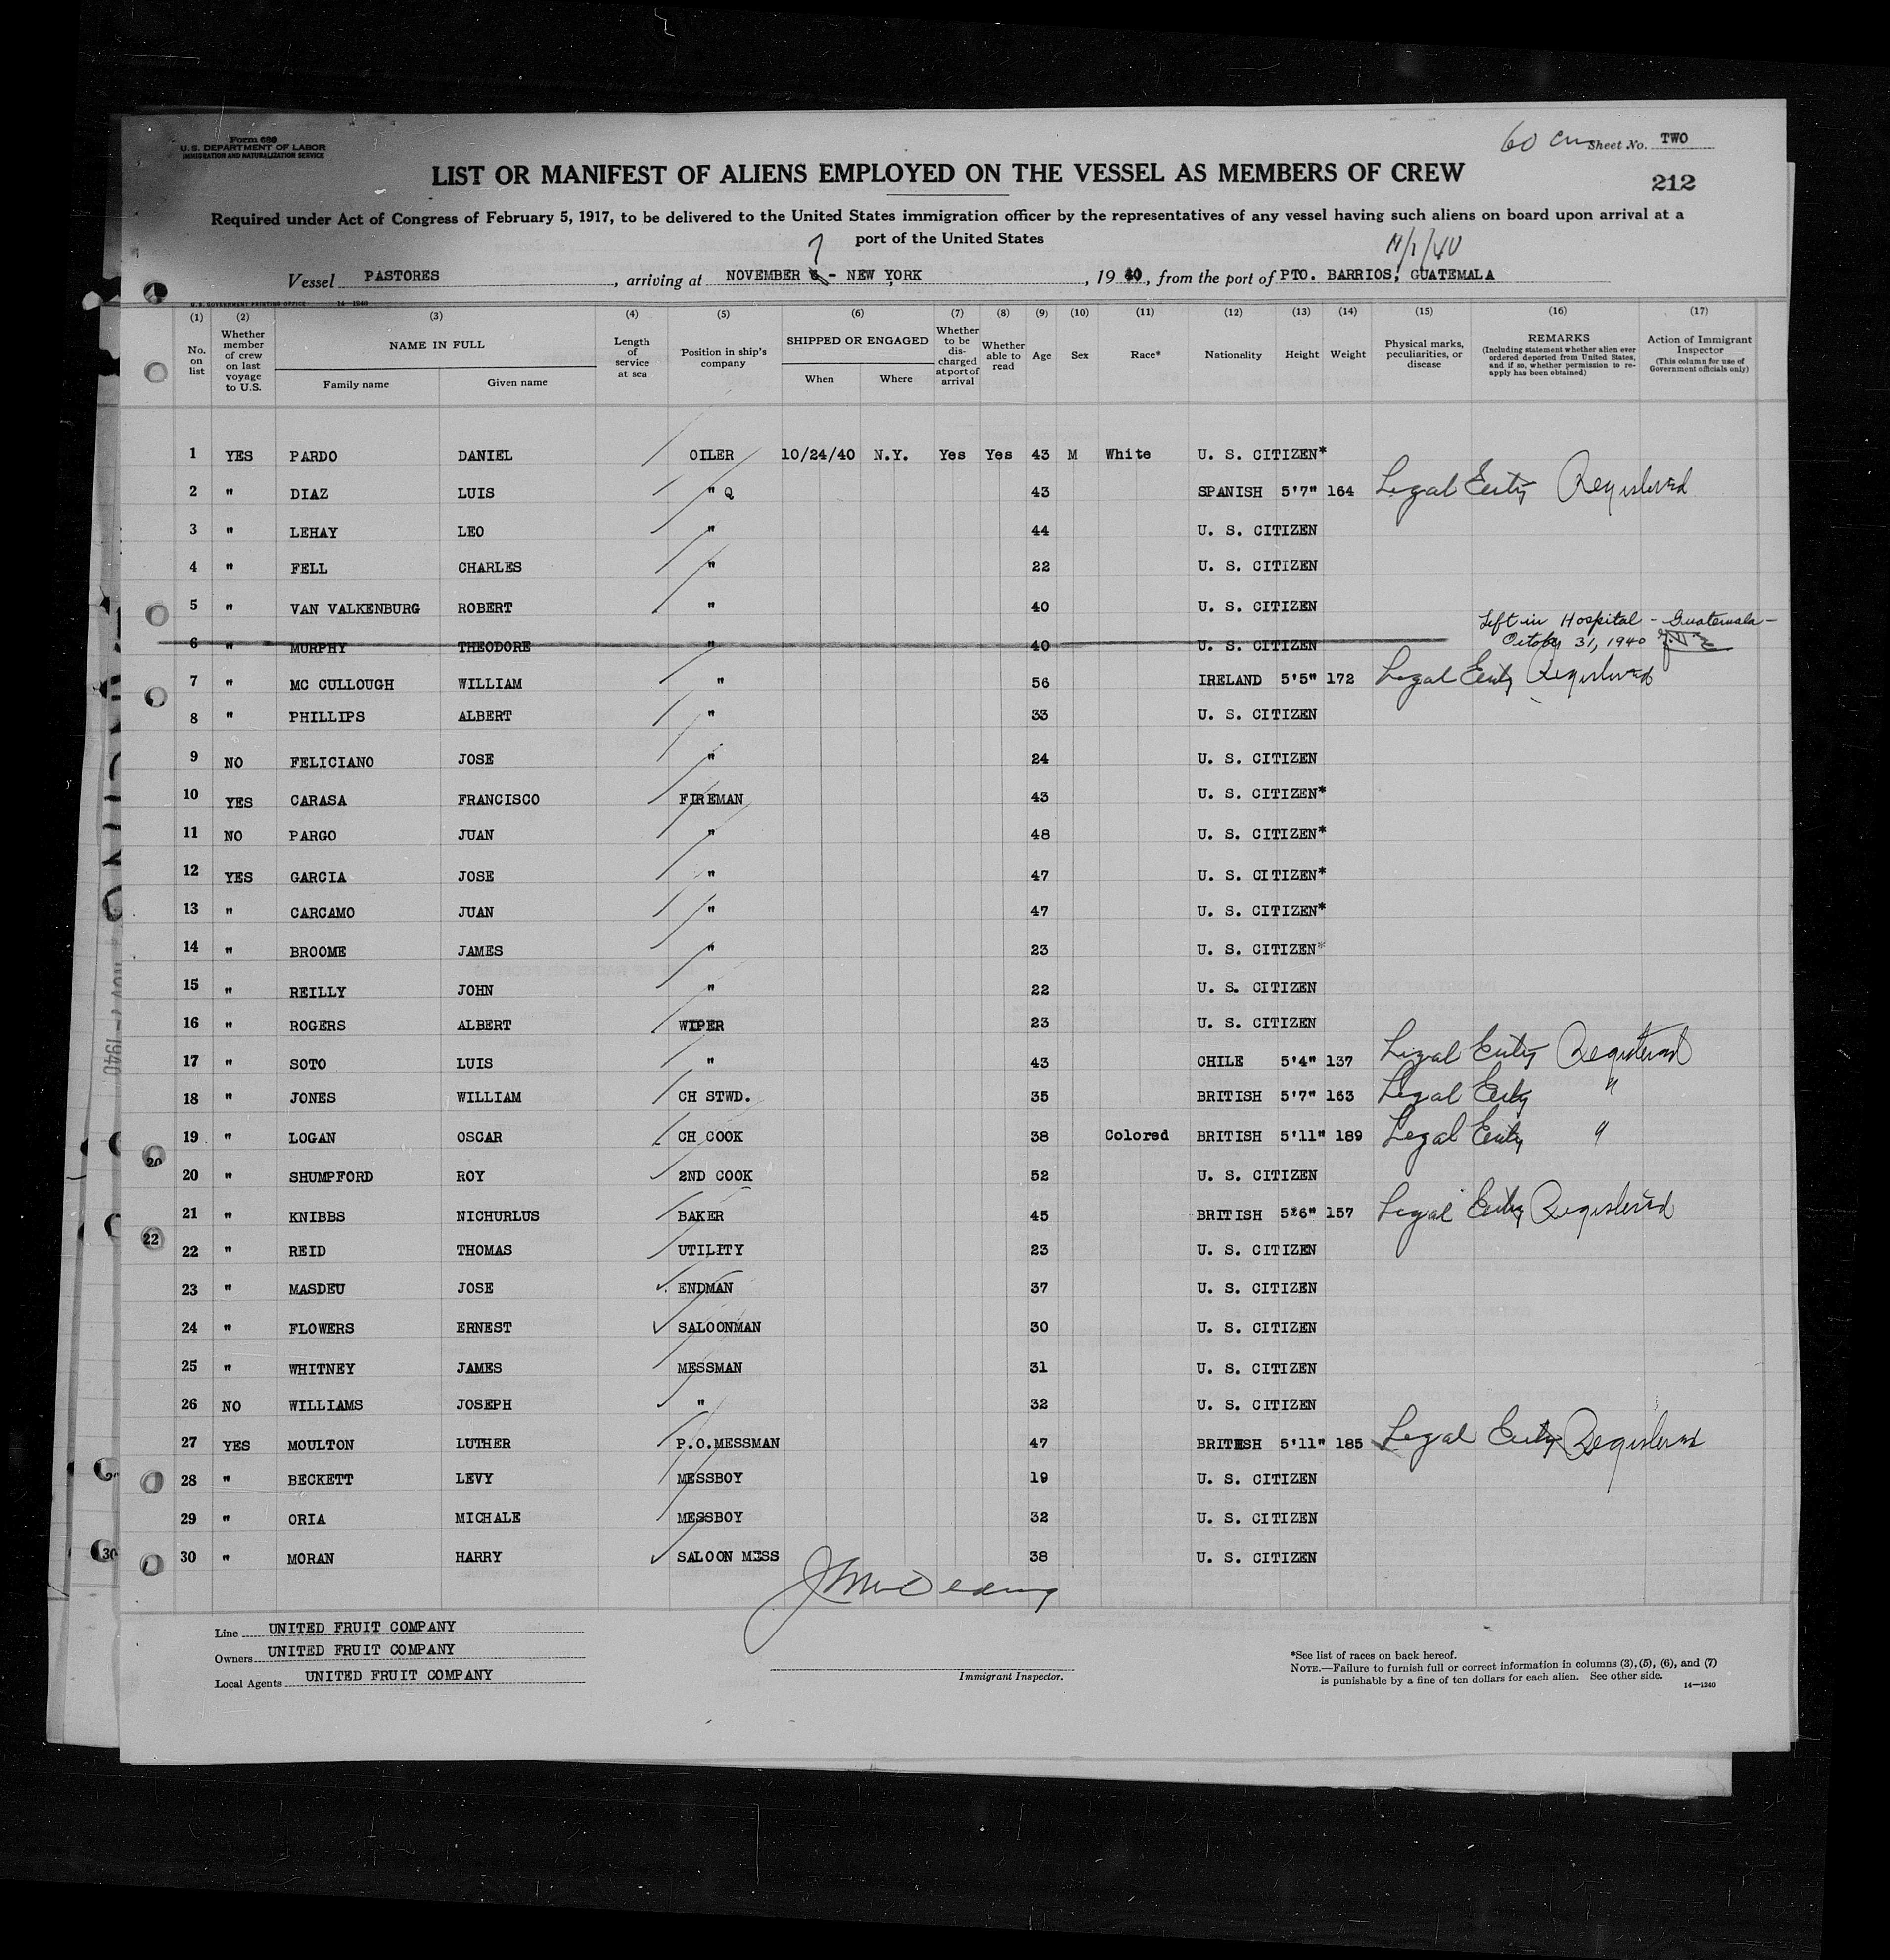 Form 680
U. S. DEPARTMENT OF LABOR
IMMIGRATION AND NATURALIZATION SERVICE
60 Sheet No. TWO
LIST OR MANIFEST OF ALIENS EMPLOYED ON THE VESSEL AS MEMBERS OF CREW
212
Required under Act of Congress of February 5, 1917, to be delivered to the United States immigration officer by the representatives of any vessel having such aliens on board upon arrival at a
port of the United States
7 11/1/40
Vessel PASTORES, arriving at NOVEMBER - NEW YORK, 1940, from the port of PTO. BARRIOS, GUATEMALA
U. S. GOVERNMENT PRINTING OFFICE 14—1240
(1) (2) (3) (4) (5) (6) (7) (8) (9) (10) (11) (12) (13) (14) (15) (16) (17)
No. on list
Whether member of crew on last voyage to U.S.
NAME IN FULL
Family name
Given name
Length of service at sea
Position in ship's company
SHIPPED OR ENGAGED
When
Where
Whether to be discharged at port of arrival
Whether able to read
Age
Sex
Race*
Nationality
Height
Weight
Physical marks, peculiarities, or disease
REMARKS
(Including statement whether alien ever ordered deported from United States, and if so, whether permission to reapply has been obtained)
Action of Immigrant Inspector
(This column for use of Government officials only)
1 YES PARDO DANIEL OILER 10/24/40 N.Y. Yes Yes 43 M White U. S. CITIZEN*
2 " DIAZ LUIS " Q 43 SPANISH 5'7" 164 Legal Entry Registered
3 " LEHAY LEO " 44 U. S. CITIZEN
4 " FELL CHARLES " 22 U. S. CITIZEN
5 " VAN VALKENBURG ROBERT " 40 U. S. CITIZEN
Left in Hospital - Guatemala -
6 " MURPHY THEODORE " 40 U. S. CITIZEN October 31, 1940
7 " MC CULLOUGH WILLIAM " 56 IRELAND 5'5" 172 Legal Entry Registered
8 " PHILLIPS ALBERT " 33 U. S. CITIZEN
9 NO FELICIANO JOSE " 24 U. S. CITIZEN
10 YES CARASA FRANCISCO FIREMAN 43 U. S. CITIZEN*
11 NO PARGO JUAN " 48 U. S. CITIZEN*
12 YES GARCIA JOSE " 47 U. S. CITIZEN*
13 " CARCAMO JUAN " 47 U. S. CITIZEN*
14 " BROOME JAMES " 23 U. S. CITIZEN*
15 " REILLY JOHN " 22 U. S. CITIZEN
16 " ROGERS ALBERT WIPER 23 U. S. CITIZEN
17 " SOTO LUIS " 43 CHILE 5'4" 137 Legal Entry Registered
18 " JONES WILLIAM CH STWD. 35 BRITISH 5'7" 163 Legal Entry "
19 " LOGAN OSCAR CH COOK 38 Colored BRITISH 5'11" 189 Legal Entry "
20 " SHUMPFORD ROY 2ND COOK 52 U. S. CITIZEN
21 " KNIBBS NICHURLUS BAKER 45 BRITISH 5'6" 157 Legal Entry Registered
22 " REID THOMAS UTILITY 23 U. S. CITIZEN
23 " MASDEU JOSE ENDMAN 37 U. S. CITIZEN
24 " FLOWERS ERNEST SALOONMAN 30 U. S. CITIZEN
25 " WHITNEY JAMES MESSMAN 31 U. S. CITIZEN
26 NO WILLIAMS JOSEPH " 32 U. S. CITIZEN
27 YES MOULTON LUTHER P.O.MESSMAN 47 BRITISH 5'11" 185 Legal Entry Registered
28 " BECKETT LEVY MESSBOY 19 U. S. CITIZEN
29 " ORIA MICHALE MESSBOY 32 U. S. CITIZEN
30 " MORAN HARRY SALOON MESS 38 U. S. CITIZEN
20
22
30
Line UNITED FRUIT COMPANY
Owners UNITED FRUIT COMPANY
Local Agents UNITED FRUIT COMPANY
Immigrant Inspector.
*See list of races on back hereof.
NOTE.—Failure to furnish full or correct information in columns (3), (5), (6), and (7)
is punishable by a fine of ten dollars for each alien. See other side.
14—1240